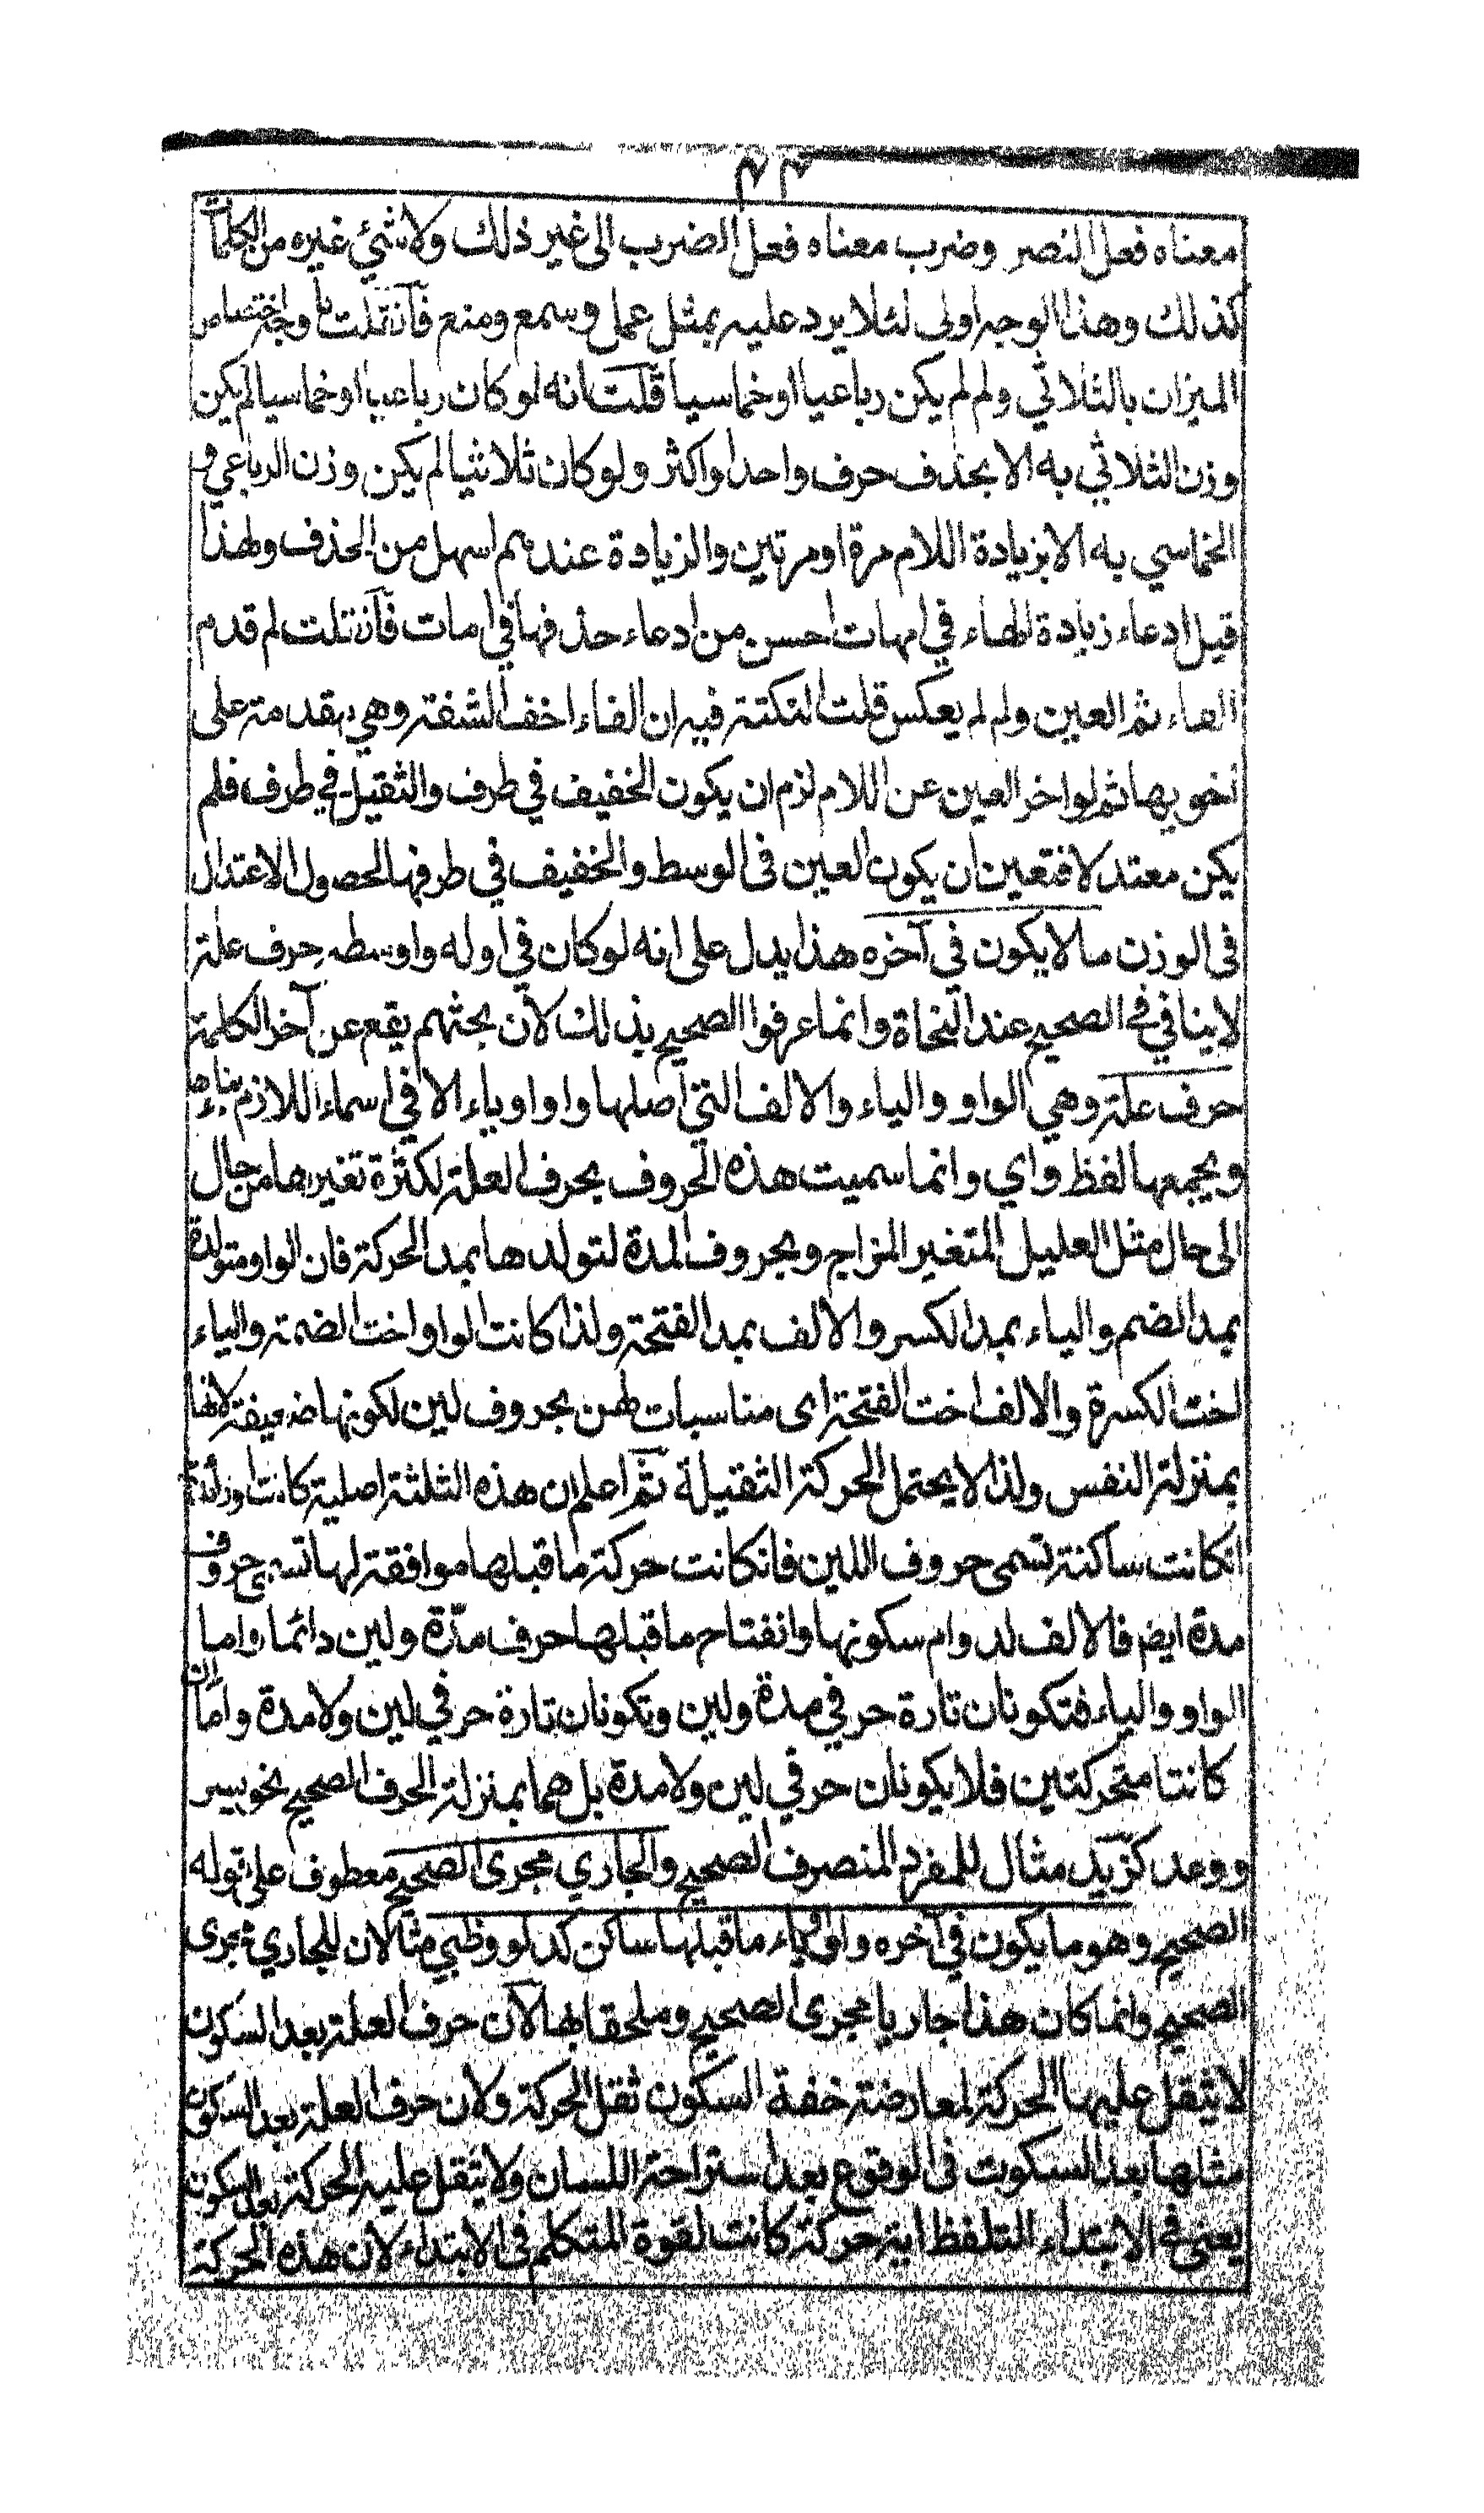 ٣٣
معناه فعل النصر وضرب معناه فعل الضرب الى غير ذلك ولا شئ غيره من الكلمات
كذلك وهذا الوجه اولى لئلا يرد عليه بمثل عمل وسمع ومنع فآن قلت ما وجه اختصاص
الميزان بالثلاثي ولم لم يكن رباعيا او خماسيا قلت انه لو كان رباعيا او خماسيا لم يكن
وزن الثلاثي به الا بحذف حرف واحد او اكثر ولو كان ثلاثيا لم يكن وزن الرباعي و
الخماسي به الا بزيادة اللام مرة او مرتين والزيادة عندهم اسهل من الحذف ولهذا
قيل ادعاء زيادة الهاء في امهات احسن من ادعاء حذفها في امات فآن قلت لم قدم
الفاء ثم العين ولم لم يعكس قلت النكتة فيه ان الفاء اخف الشفة وهي مقدمة على
اخويها ثم لو اخر العين عن اللام لزم ان يكون الخفيف في طرف والثقيل في طرف فلم
يكن معتدلا فتعين ان يكون العين فى الوسط والخفيف في طرفيها لحصول الاعتدال
فى الوزن ما لا يكون في آخره هذا يدل على انه لو كان في اوله واوسطه حرف علة
لا ينافي في الصحيح عند النحاة وانما عرفوا الصحيح بذلك لان بحثهم يقع عن آخر الكلمة
حرف علة وهي الواو والياء والالف التي اصلها واو او ياء الا في اسماء اللازم بناءها
ويجمعها لفظ واي وانما سميت هذه الحروف بحرف العلة لكثرة تغيرها من حال
الى حال مثل العليل المتغير المزاج وبحروف المدة لتولدها بمد الحركة فان الواو متولدة
بمد الضم والياء بمد الكسر والالف بمد الفتحة ولذا كانت الواو اخت الضمة والياء
اخت الكسرة والالف اخت الفتحة اى مناسبات لهن بحروف لين لكونها ضعيفة لانها
بمنزلة النفس ولذا لا يحتمل الحركة الثقيلة ثم اعلم ان هذه الثلثة اصلية كانت او زائدة
انكانت ساكنة تسمى حروف اللين فانكانت حركة ما قبلها موافقة لها تسمى حروف
مدة ايض فالالف لدوام سكونها وانفتاح ما قبلها حرف مدّة ولين دائما واما
الواو والياء فتكونان تارة حرفي مدة ولين وتكونان تارة حرفي لين ولا مدة واما ان
كانتا متحركتين فلا يكونان حرفي لين ولا مدة بل هما بمنزلة الحرف الصحيح نحو يسر
ووعد كزيد مثال للمفرد المنصرف الصحيح والجاري مجرى الصحيح معطوف على قوله
الصحيح وهو ما يكون في آخره واو او ياء ما قبلها ساكن كدلو وظبي مثالان للجاري مجرى
الصحيح وانما كان هذا جاريا مجرى الصحيح وملحقا بها لآن حرف العلة بعد السكون
لا يثقل عليها الحركة لمعارضة خفة السكون ثقل الحركة ولان حرف العلة بعد السكون
مثلها بعد السكوت فى الوقوع بعد استراحة اللسان ولا يثقل عليه الحركة بعد السكوت
يعنى في الابتداء التلفظ اية حركة كانت لقوة المتكلم فى الابتداء لان هذه الحركة